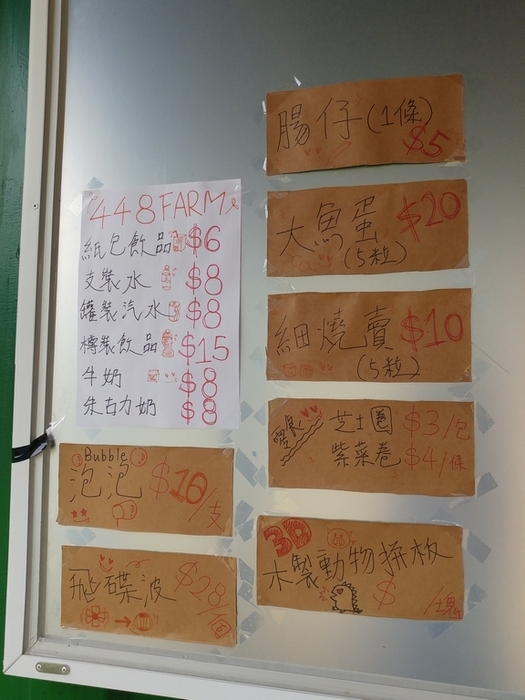 448 FARM
紙包飲品 $6
支裝水 $8
罐裝汽水 $8
樽裝飲品 $15
牛奶 $8
朱古力奶 $8
Bubble
泡泡 $10/支
飛碟波 $28/個
腸仔(1條)
$5
大魚蛋 $20
(5粒)
細燒賣 $10
(5粒)
芝士圈 $3/包
紫菜卷 $4/條
3D
木製動物拼板
$ /塊